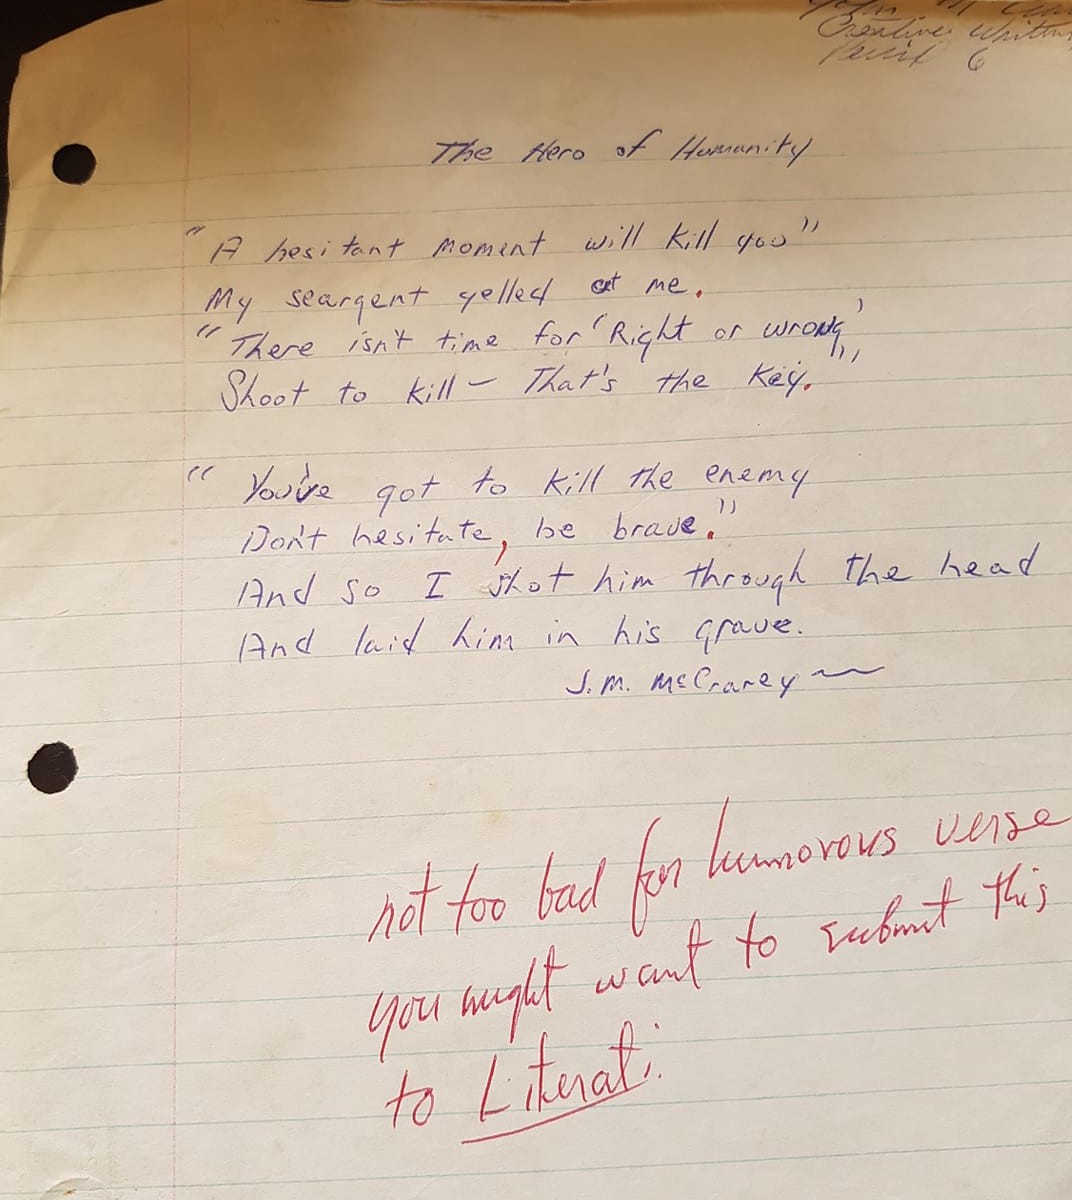 Creative Writin
Period 6
The Hero of Humanity
"A hesitant moment will kill you"
My seargent yelled at me.
"There isn't time for 'Right or wrong'
Shoot to kill – That's the key."
"You've got to kill the enemy
Don't hesitate, be brave."
And so I shot him through the head
And laid him in his grave.
J.M. McCraney
not too bad for humorous verse
you might want to submit this
to Literati.